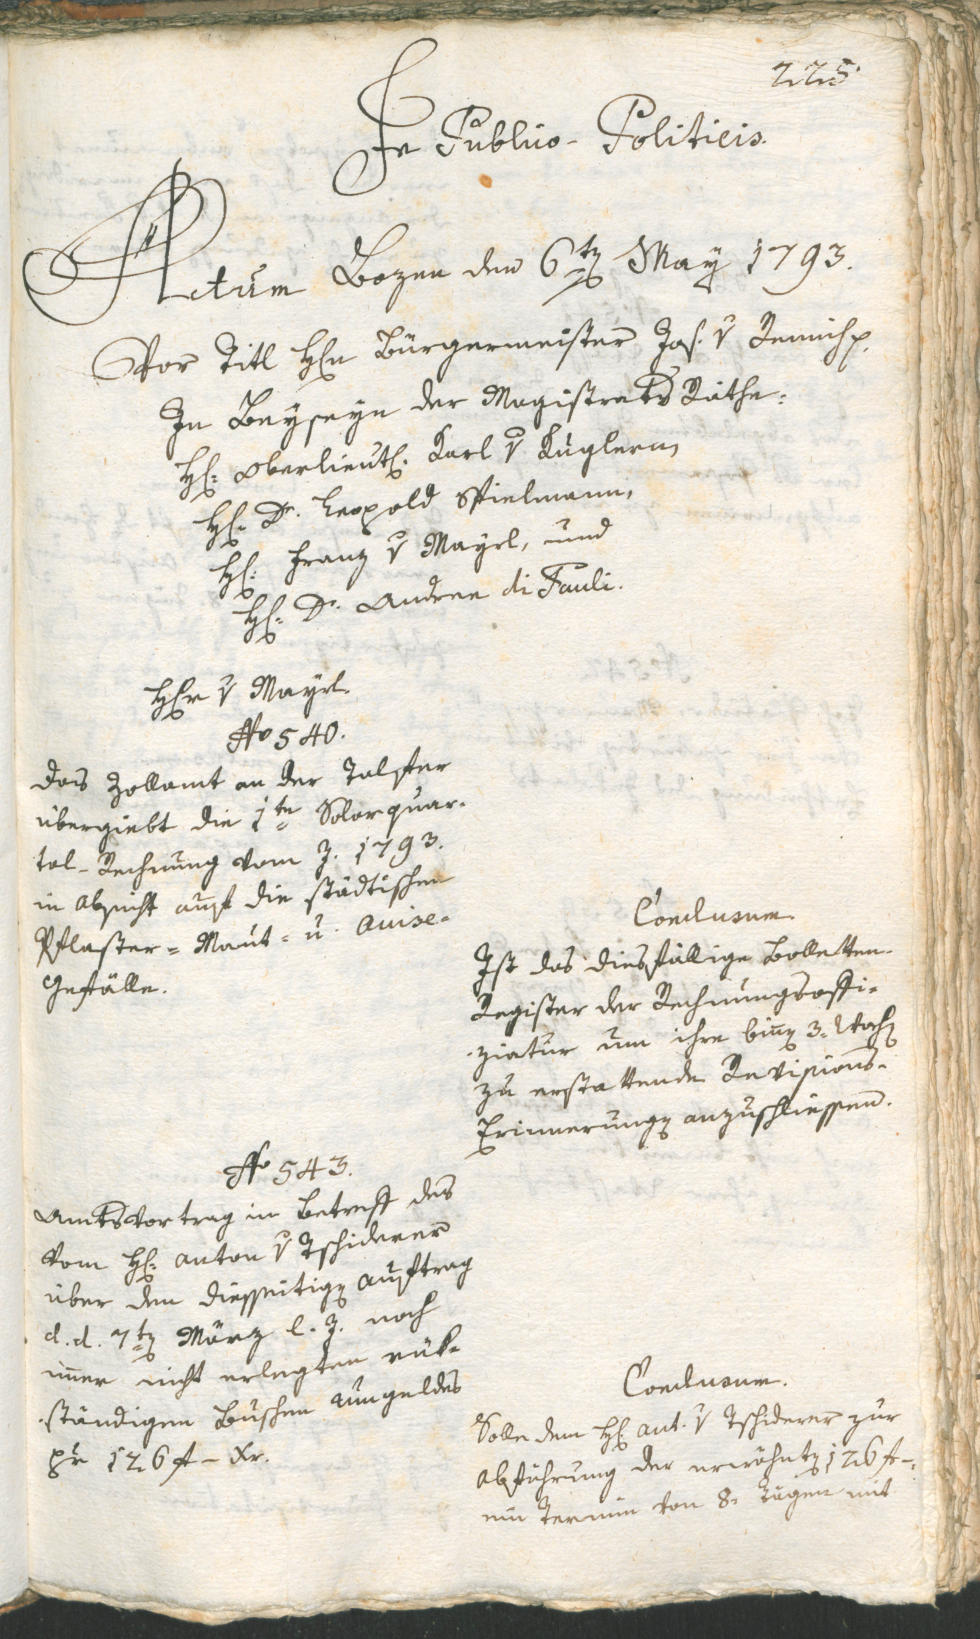 225.
In Publico-Politicis.
Actum Bozen den 6ten May 1793.
Vor Titl Hrn Bürgermeister Jos. v Remich p.
In Beyseyn der Magistrats Räthe:
H: Oberlieut. Karl v Kuglern,
H: Dr. Leopold Spielmann,
H: Franz v Mayrl, und
H: Dr. Andree di Pauli.
Herr v Mayrl.
No 540.
Das Zollamt an der Talfer
übergiebt die 1te Solarquar-
tal-Rechnung vom J. 1793.
in Absicht auf die städtischen
Pflaster-Maut- u. Avise-
Gefälle.
Conclusum.
Ist das diesfällige Bolletten-
Register der Rechnungsoffi-
ziatur um ihre binen 3. Wochen
zu erstattende Revisions-
Erinnerungen anzuschliessen.
No 543.
Amtsvortrag in Betreff des
vom H: Anton v Tschiderer
über den diesseitigen Auftrag
d.d. 7ten März l. J. noch
imer nicht erlegten rük-
ständigen Buschen Umgeldes
pr 126 f – Xr.
Conclusum.
Solle dem H: Ant. v Tschiderer zur
Abführung der erwähnten 126 f –
ein Termin von 8. Tägen mit